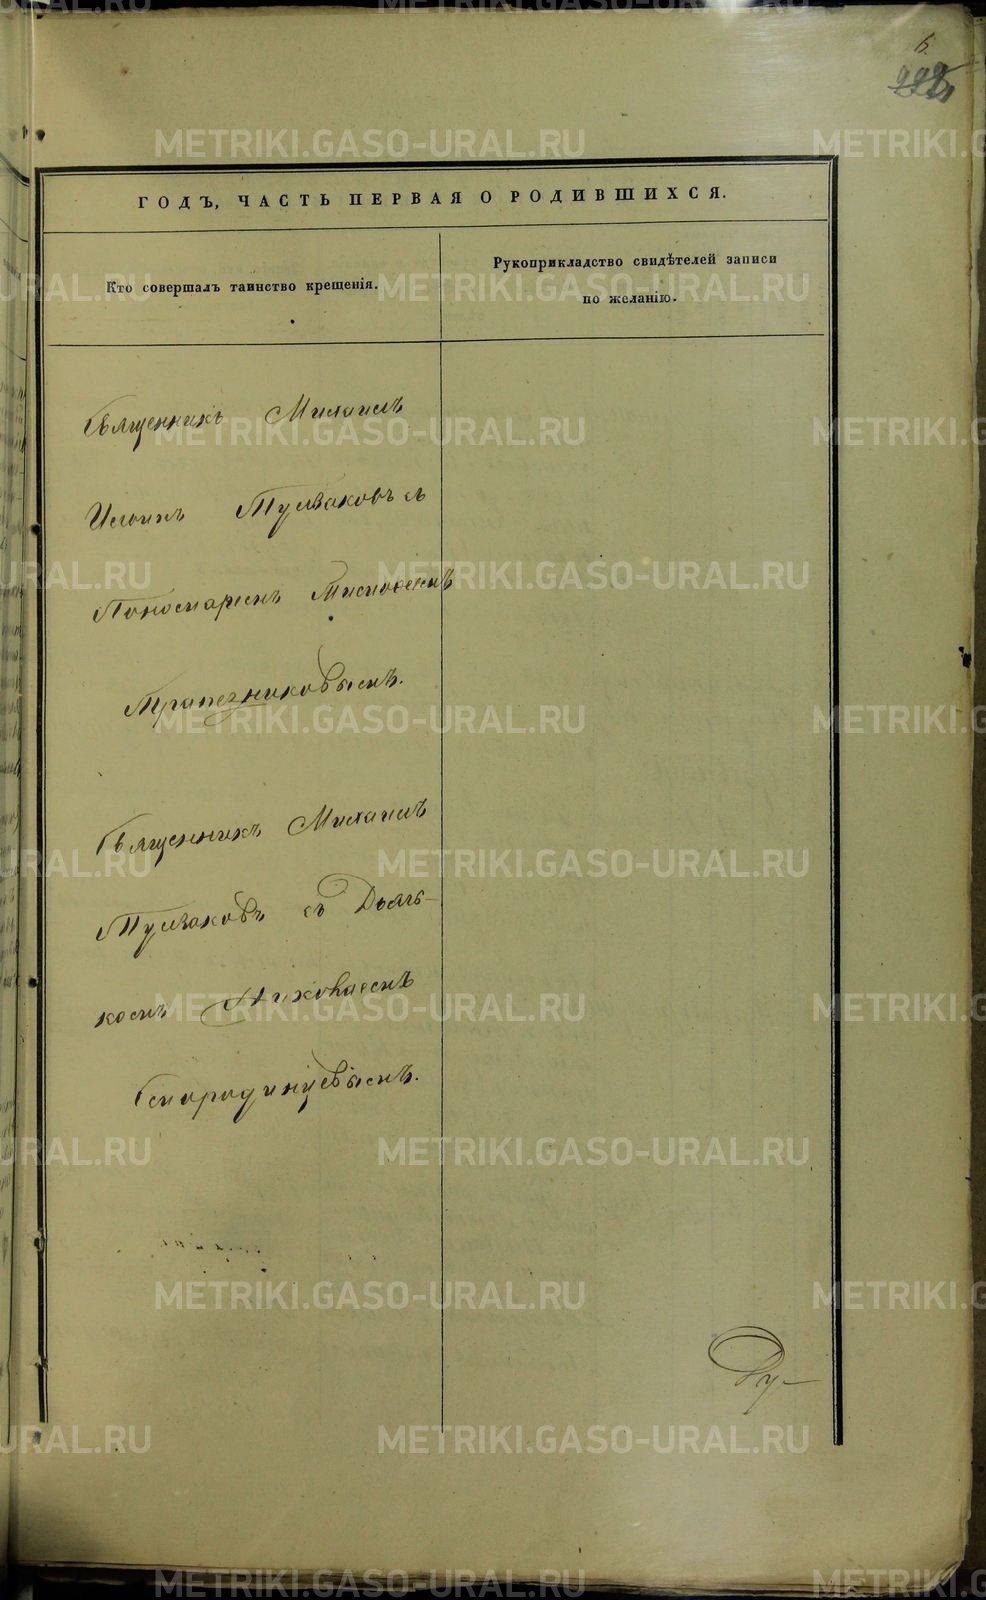 6.
ГОДЪ, ЧАСТЬ ПЕРВАЯ О РОДИВШИХСЯ.
Кто совершалъ таинство крещенія.
Рукоприкладство свидѣтелей записи
по желанію.
Священникъ Михаилъ
Тулваковъ съ
Пономаремъ
Трапезниковымъ.
Священникъ Михаилъ
Тулваковъ съ Дьяч-
комъ Николаемъ
Смородинцевымъ.
Ду-
METRIKI.GASO-URAL.RU